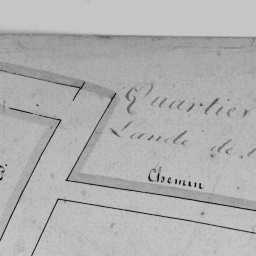 Quartier
Lande de
Chemin